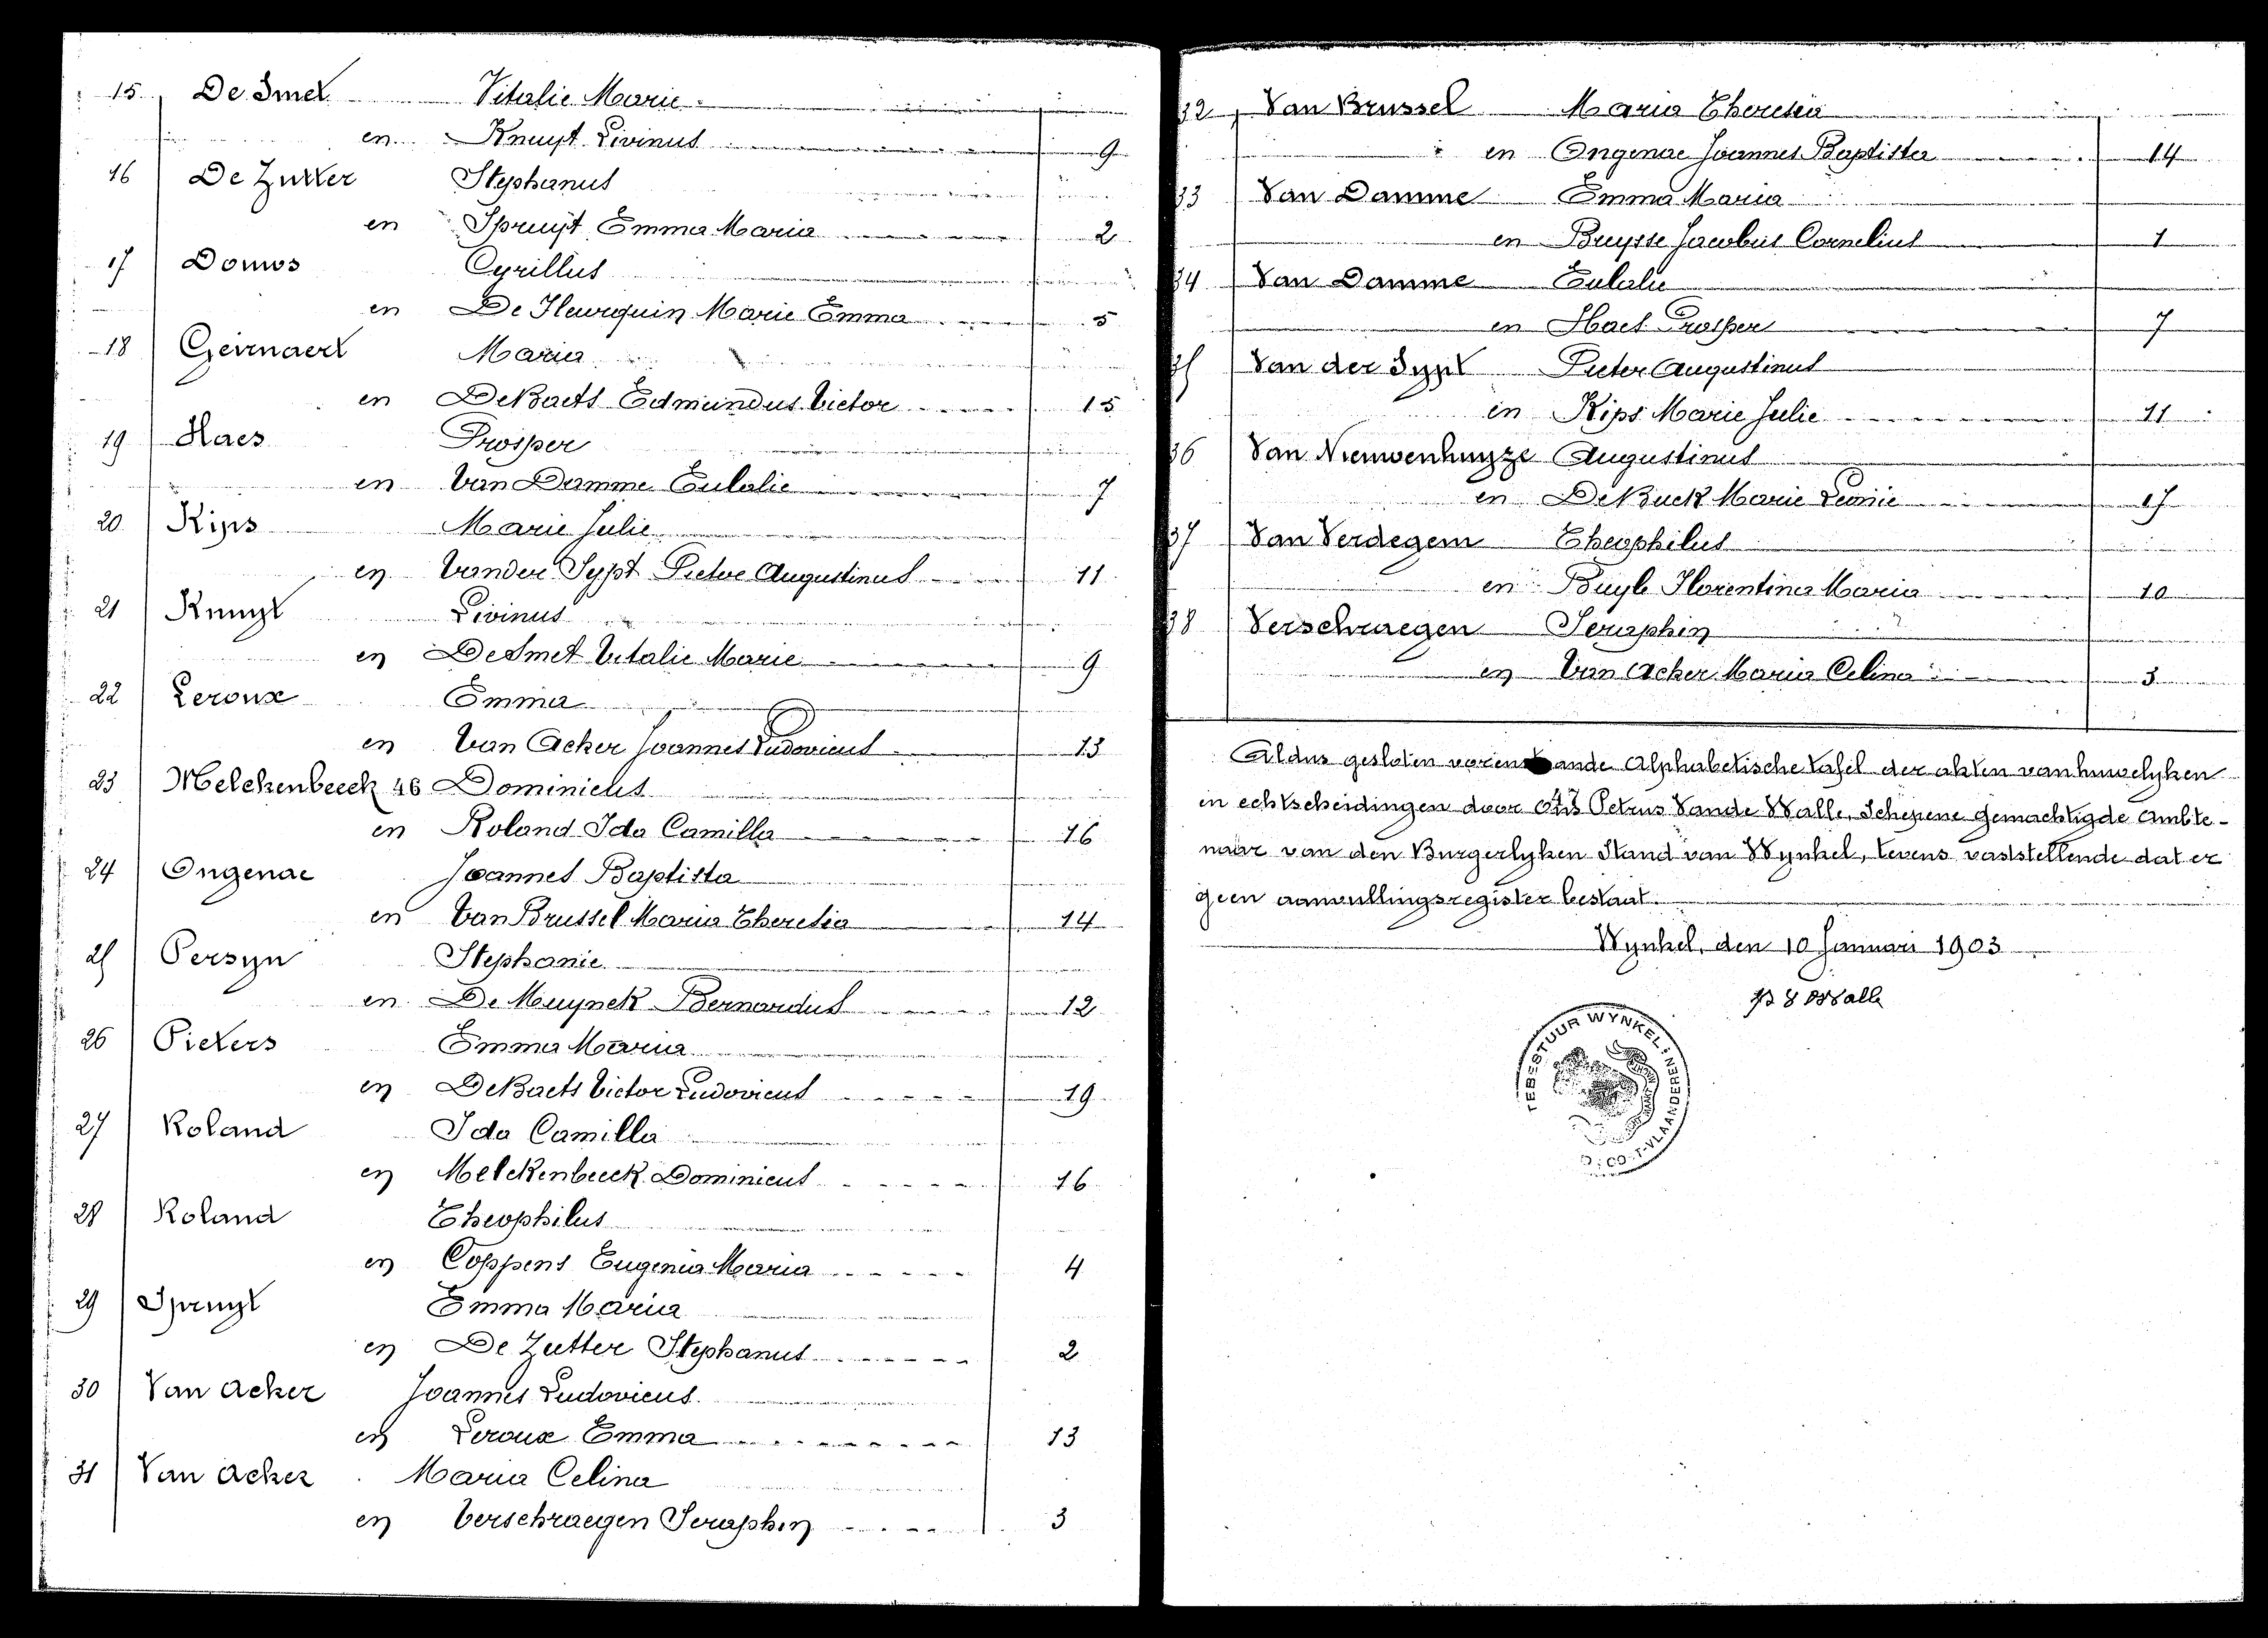 15 De Smet Vitalie Marie
en Knuyt Livinus 9
16 De Zutter Stephanus
en Spruyt Emma Maria 2
17 Domos Cyrillus
en De Heurquin Marie Emma 5
18 Geirnaert Maria
en De Baets Edmundus Victor 15
19 Haes Prosper
en Van Damme Eulalie 7
20 Kips Marie Julie
en Vander Sypt Pieter Augustinus 11
21 Knuyt Livinus
en De Smet Vitalie Marie 9
22 Leroux Emma
en Van Acker Joannes Ludovicus 13
23 Melckenbeeck 46 Dominicus
en Roland Ida Camilla 16
24 Ongenae Joannes Baptista
en Van Brussel Maria Theresia 14
25 Persyn Stephanie
en De Muynck Bernardus 12
26 Pieters Emma Maria
en De Baets Victor Ludovicus 19
27 Roland Ida Camilla
en Melckenbeeck Dominicus 16
28 Roland Theophilus
en Coppens Eugenia Maria 4
29 Spruyt Emma Maria
en De Zutter Stephanus 2
30 Van Acker Joannes Ludovicus
en Leroux Emma 13
31 Van Acker Maria Celina
en Verschraegen Seraphin 3
32 Van Brussel Maria Theresia
en Ongenae Joannes Baptista 14
33 Van Damme Emma Maria
en Buysse Jacobus Cornelius 1
34 Van Damme Eulalie
en Haes Prosper 7
35 Van der Sypt Pieter Augustinus
en Kips Marie Julie 11
36 Van Nieuwenhuyze Augustinus
en De Buck Marie Leonie 17
37 Van Verdegem Theophilus
en Buyle Florentina Maria 10
38 Verschraegen Seraphin
en Van Acker Maria Celina 3
Aldus gesloten voren ande Alphabetische tafel der akten van huwelyken
en echtscheidingen door ons Petrus Vande Walle, Schepene gemachtigde Ambte-
naar van den Burgerlyken Stand van Wynkel, tevens vaststellende dat er
geen aanvullingsregister bestaat.
Wynkel, den 10 Januari 1903
Walle
TEBESTUUR WYNKEL
VLAANDEREN